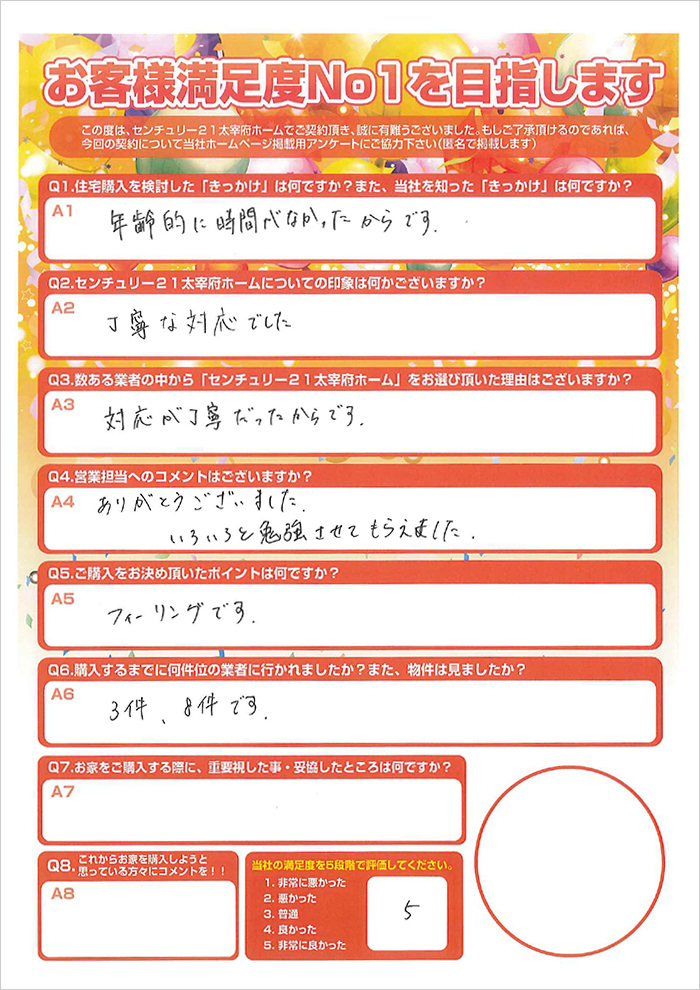 お客様満足度No1を目指します
この度は、センチュリー21太宰府ホームでご契約頂き、誠に有難うございました。もしご了承頂けるのであれば、
今回の契約について当社ホームページ掲載用アンケートにご協力下さい(匿名で掲載します)
Q1.住宅購入を検討した「きっかけ」は何ですか?また、当社を知った「きっかけ」は何ですか?
A1
年齢的に時間がなかったからです.
Q2.センチュリー21太宰府ホームについての印象は何かございますか?
A2
丁寧な対応でした
Q3.数ある業者の中から「センチュリー21太宰府ホーム」をお選び頂いた理由はございますか?
A3
対応が丁寧だったからです.
Q4.営業担当へのコメントはございますか?
A4
ありがとうございました.
いろいろと勉強させてもらえました.
Q5.ご購入をお決め頂いたポイントは何ですか?
A5
フィーリングです.
Q6.購入するまでに何件位の業者に行かれましたか?また、物件は見ましたか?
A6
3件、8件です.
Q7.お家をご購入する際に、重要視した事・妥協したところは何ですか?
A7
Q8.これからお家を購入しようと
思っている方々にコメントを!!
A8
当社の満足度を5段階で評価してください。
1. 非常に悪かった
2. 悪かった
3. 普通
4. 良かった
5. 非常に良かった
5